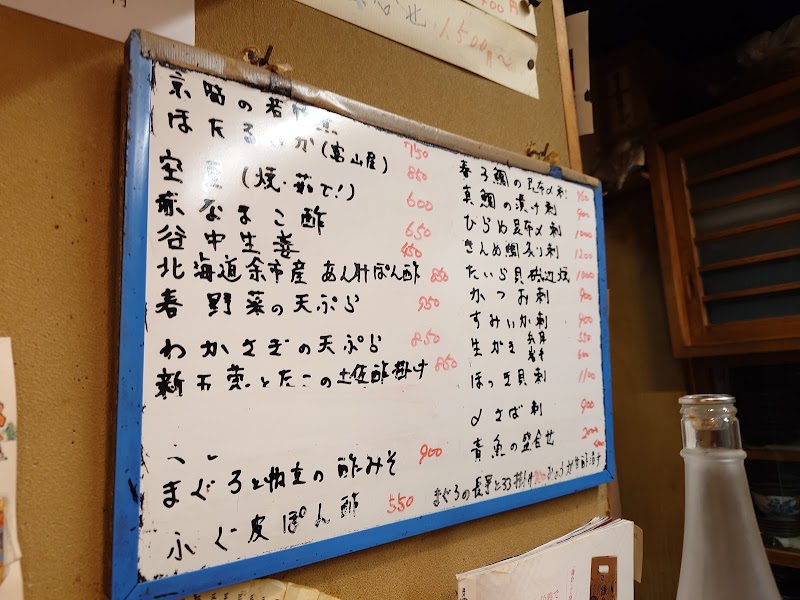 1,500円~
京 の若
ほたるいか(富山産) 750
空豆(焼・茹で!) 850
なまこ酢 600
谷中生姜 650
450
北海道余市産 あん肝ぽん酢 850
春野菜の天ぷら 950
わかさぎの天ぷら 850
新玉葱とたこの土佐酢掛け 850
まぐろと の酢みそ 900
ふぐ皮ぽん酢 550
春子鯛の昆布〆刺
真鯛の漬け刺 900
ひらめ昆布〆刺 1000
きんめ鯛炙り刺 1200
たいら貝磯辺焼 1000
かつお刺 900
すみいか刺 900
生がき 550
600
ほっき貝刺 1100
〆さば刺 900
青魚の盛合せ
まぐろの長芋とろろ掛け